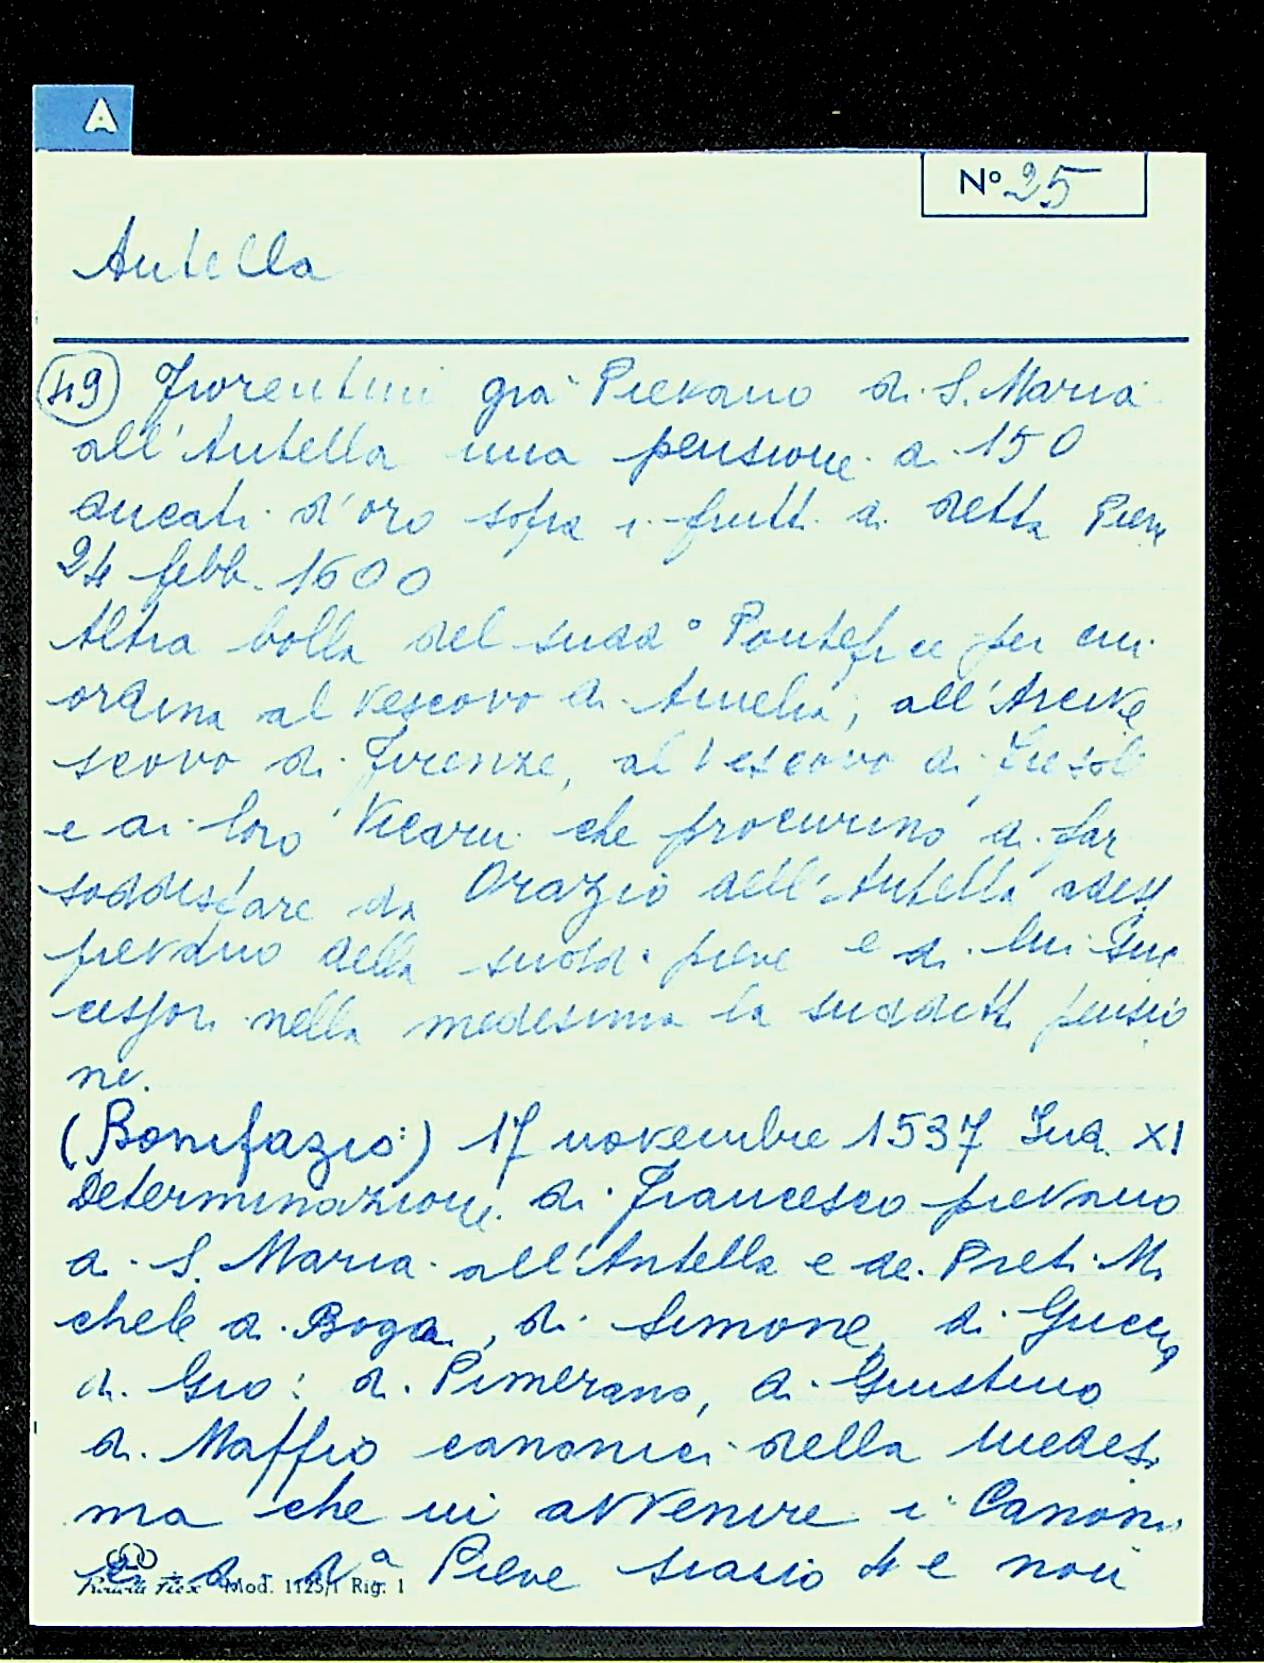 A
N° 25
Antella
(49) Fiorentini già Pievano di S. Maria
all'Antella una pensione di 150
ducati d'oro sopra i frutti di detta Pieve
24 febb. 1600
Altra bolla del sudd° Pontefice per cui
ordina al Vescovo di Amelia, all'Arcive
scovo di Firenze, al Vescovo di Fiesole
e ai loro Vicarii che procurino di far
soddisfare da Orazio dell'Antella adess
pievano della pieve e di lui suc
cessori nella medesima la suddetta pensio
ne.
(Bonifazio:) 17 novembre 1537 Ind. XI
Determinazione di Francesco pievano
di S. Maria all'Antella e de. Preti Mi
chele di Boga, di Simone, di
di Gio: di Pimerano, di Giustino
di Maffio canonici della medesi
ma che in avvenire i Canoni
ci di d.ª Pieve siano 4 e non
Mod. 1125/1 Rig. 1